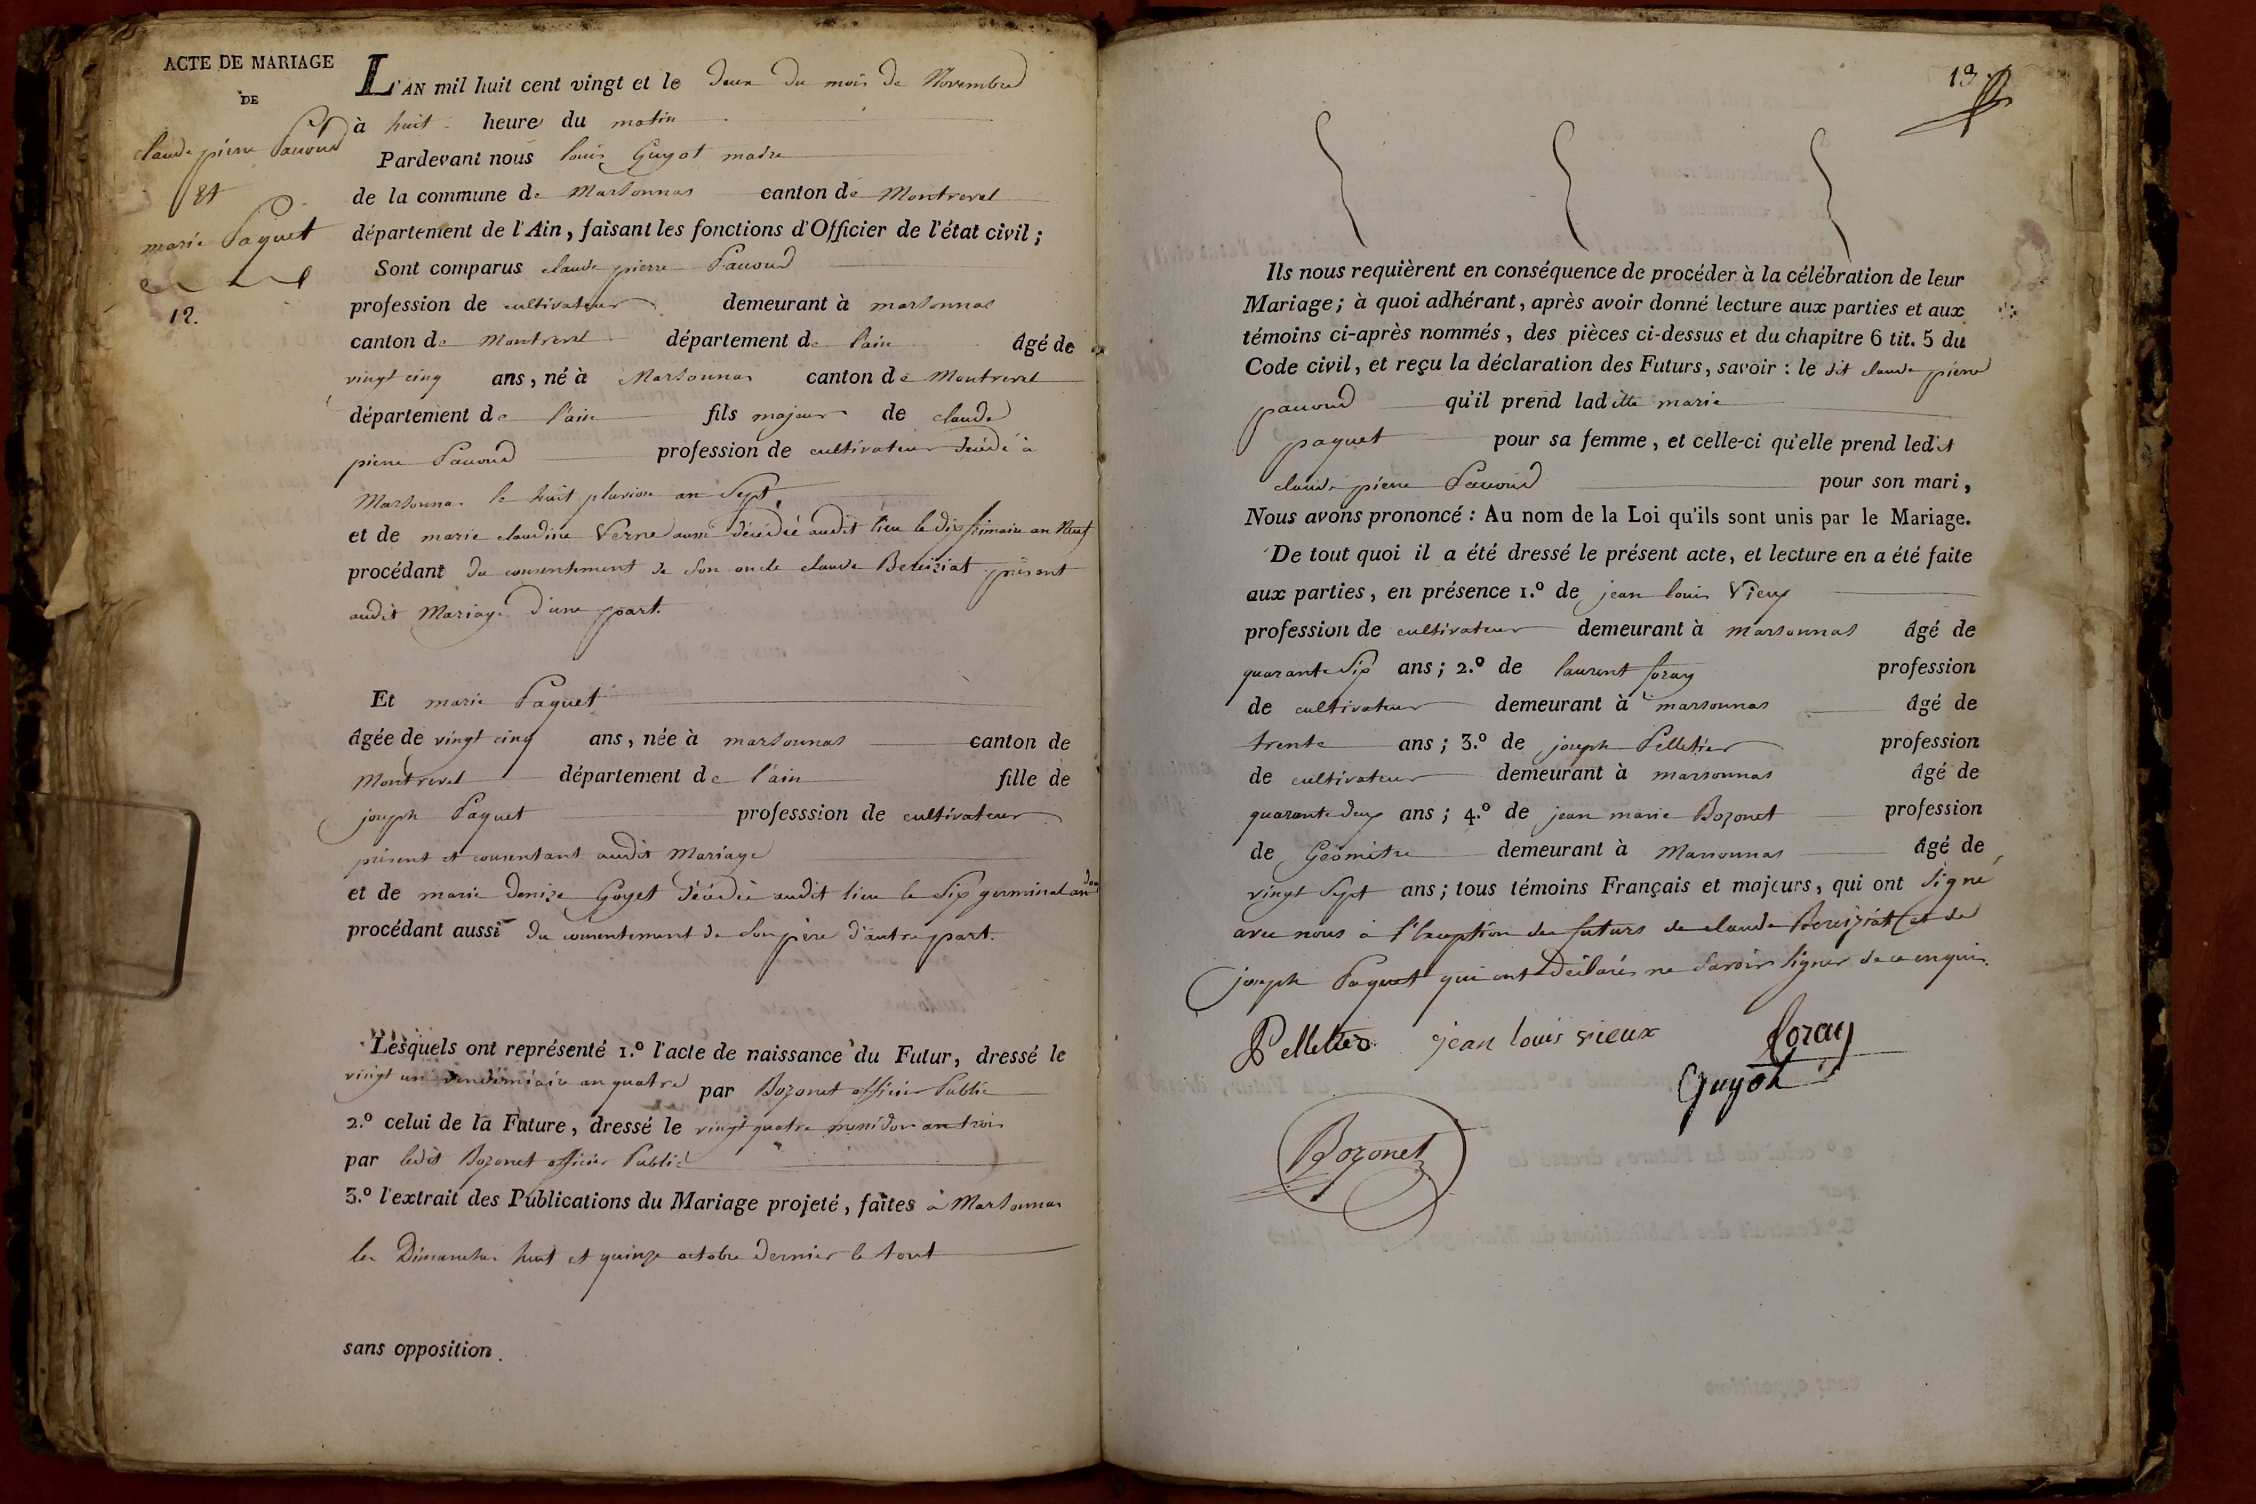 ACTE DE MARIAGE
DE
claude pierre Pauoud
Et
marie Paquet
12.
L'AN mil huit cent vingt et le deux du mois de Novembre
à huit heure du matin
Pardevant nous louis Guyot maire
de la commune de Marsonnas canton de Montrevel
département de l'Ain, faisant les fonctions d'Officier de l'état civil;
Sont comparus claude pierre Pauoud
profession de cultivateur demeurant à marsonnas
canton de Montrevel département de l'ain âgé de
vingt cinq ans, né à Marsonnas canton de Montrevel
département de l'ain fils majeur de claude
pierre Pauoud profession de cultivateur décédé à
Marsonnas le huit pluviose an Sept
et de marie claudine Verne aussi décédée audit lieu le dix frimaire an Neuf
procédant du consentement de son oncle claude Bereiziat présent
audit Mariage d'une part.
Et marie Paquet
âgée de vingt cinq ans, née à marsonnas canton de
Montrevel département de l'ain fille de
joseph Paquet professsion de cultivateur
présent et consentant audit Mariage
et de marie denise Goyet décédée audit lieu le Six germinal an
procédant aussi du consentement de Son père d'autre part.
Lesquels ont représenté 1.º l'acte de naissance du Futur, dressé le
vingt un vendémiaire an quatre par Bozonet officier Public
2.º celui de la Future, dressé le vingt quatre messidor an trois
par ledit Bozonet officier Public
3.º l'extrait des Publications du Mariage projeté, faites à Marsonnas
les Dimanches huit et quinze octobre dernier le tout
sans opposition.
13
Ils nous requièrent en conséquence de procéder à la célébration de leur
Mariage; à quoi adhérant, après avoir donné lecture aux parties et aux
témoins ci-après nommés, des pièces ci-dessus et du chapitre 6 tit. 5 du
Code civil, et reçu la déclaration des Futurs, savoir : le dit claude pierre
pauoud qu'il prend ladite marie
paquet pour sa femme, et celle-ci qu'elle prend ledit
claude pierre Pauoud pour son mari,
Nous avons prononcé : Au nom de la Loi qu'ils sont unis par le Mariage.
De tout quoi il a été dressé le présent acte, et lecture en a été faite
aux parties, en présence 1.º de jean louis Vieux
profession de cultivateur demeurant à marsonnas âgé de
quarante Six ans; 2.º de laurent foray profession
de cultivateur demeurant à marsonnas âgé de
trente ans; 3.º de joseph Pelletier profession
de cultivateur demeurant à marsonnas âgé de
quarante deux ans; 4.º de jean marie Bozonet profession
de Géomètre demeurant à Marsonnas âgé de
vingt Sept ans; tous témoins Français et majeurs, qui ont Signé
avec nous à l'Exception des futurs de claude Bereiziat et de
joseph Paquet qui ont déclarés ne Savoir Signer de ce enquis.
Pelletier jean louis vieux foray
Guyot
Bozonet